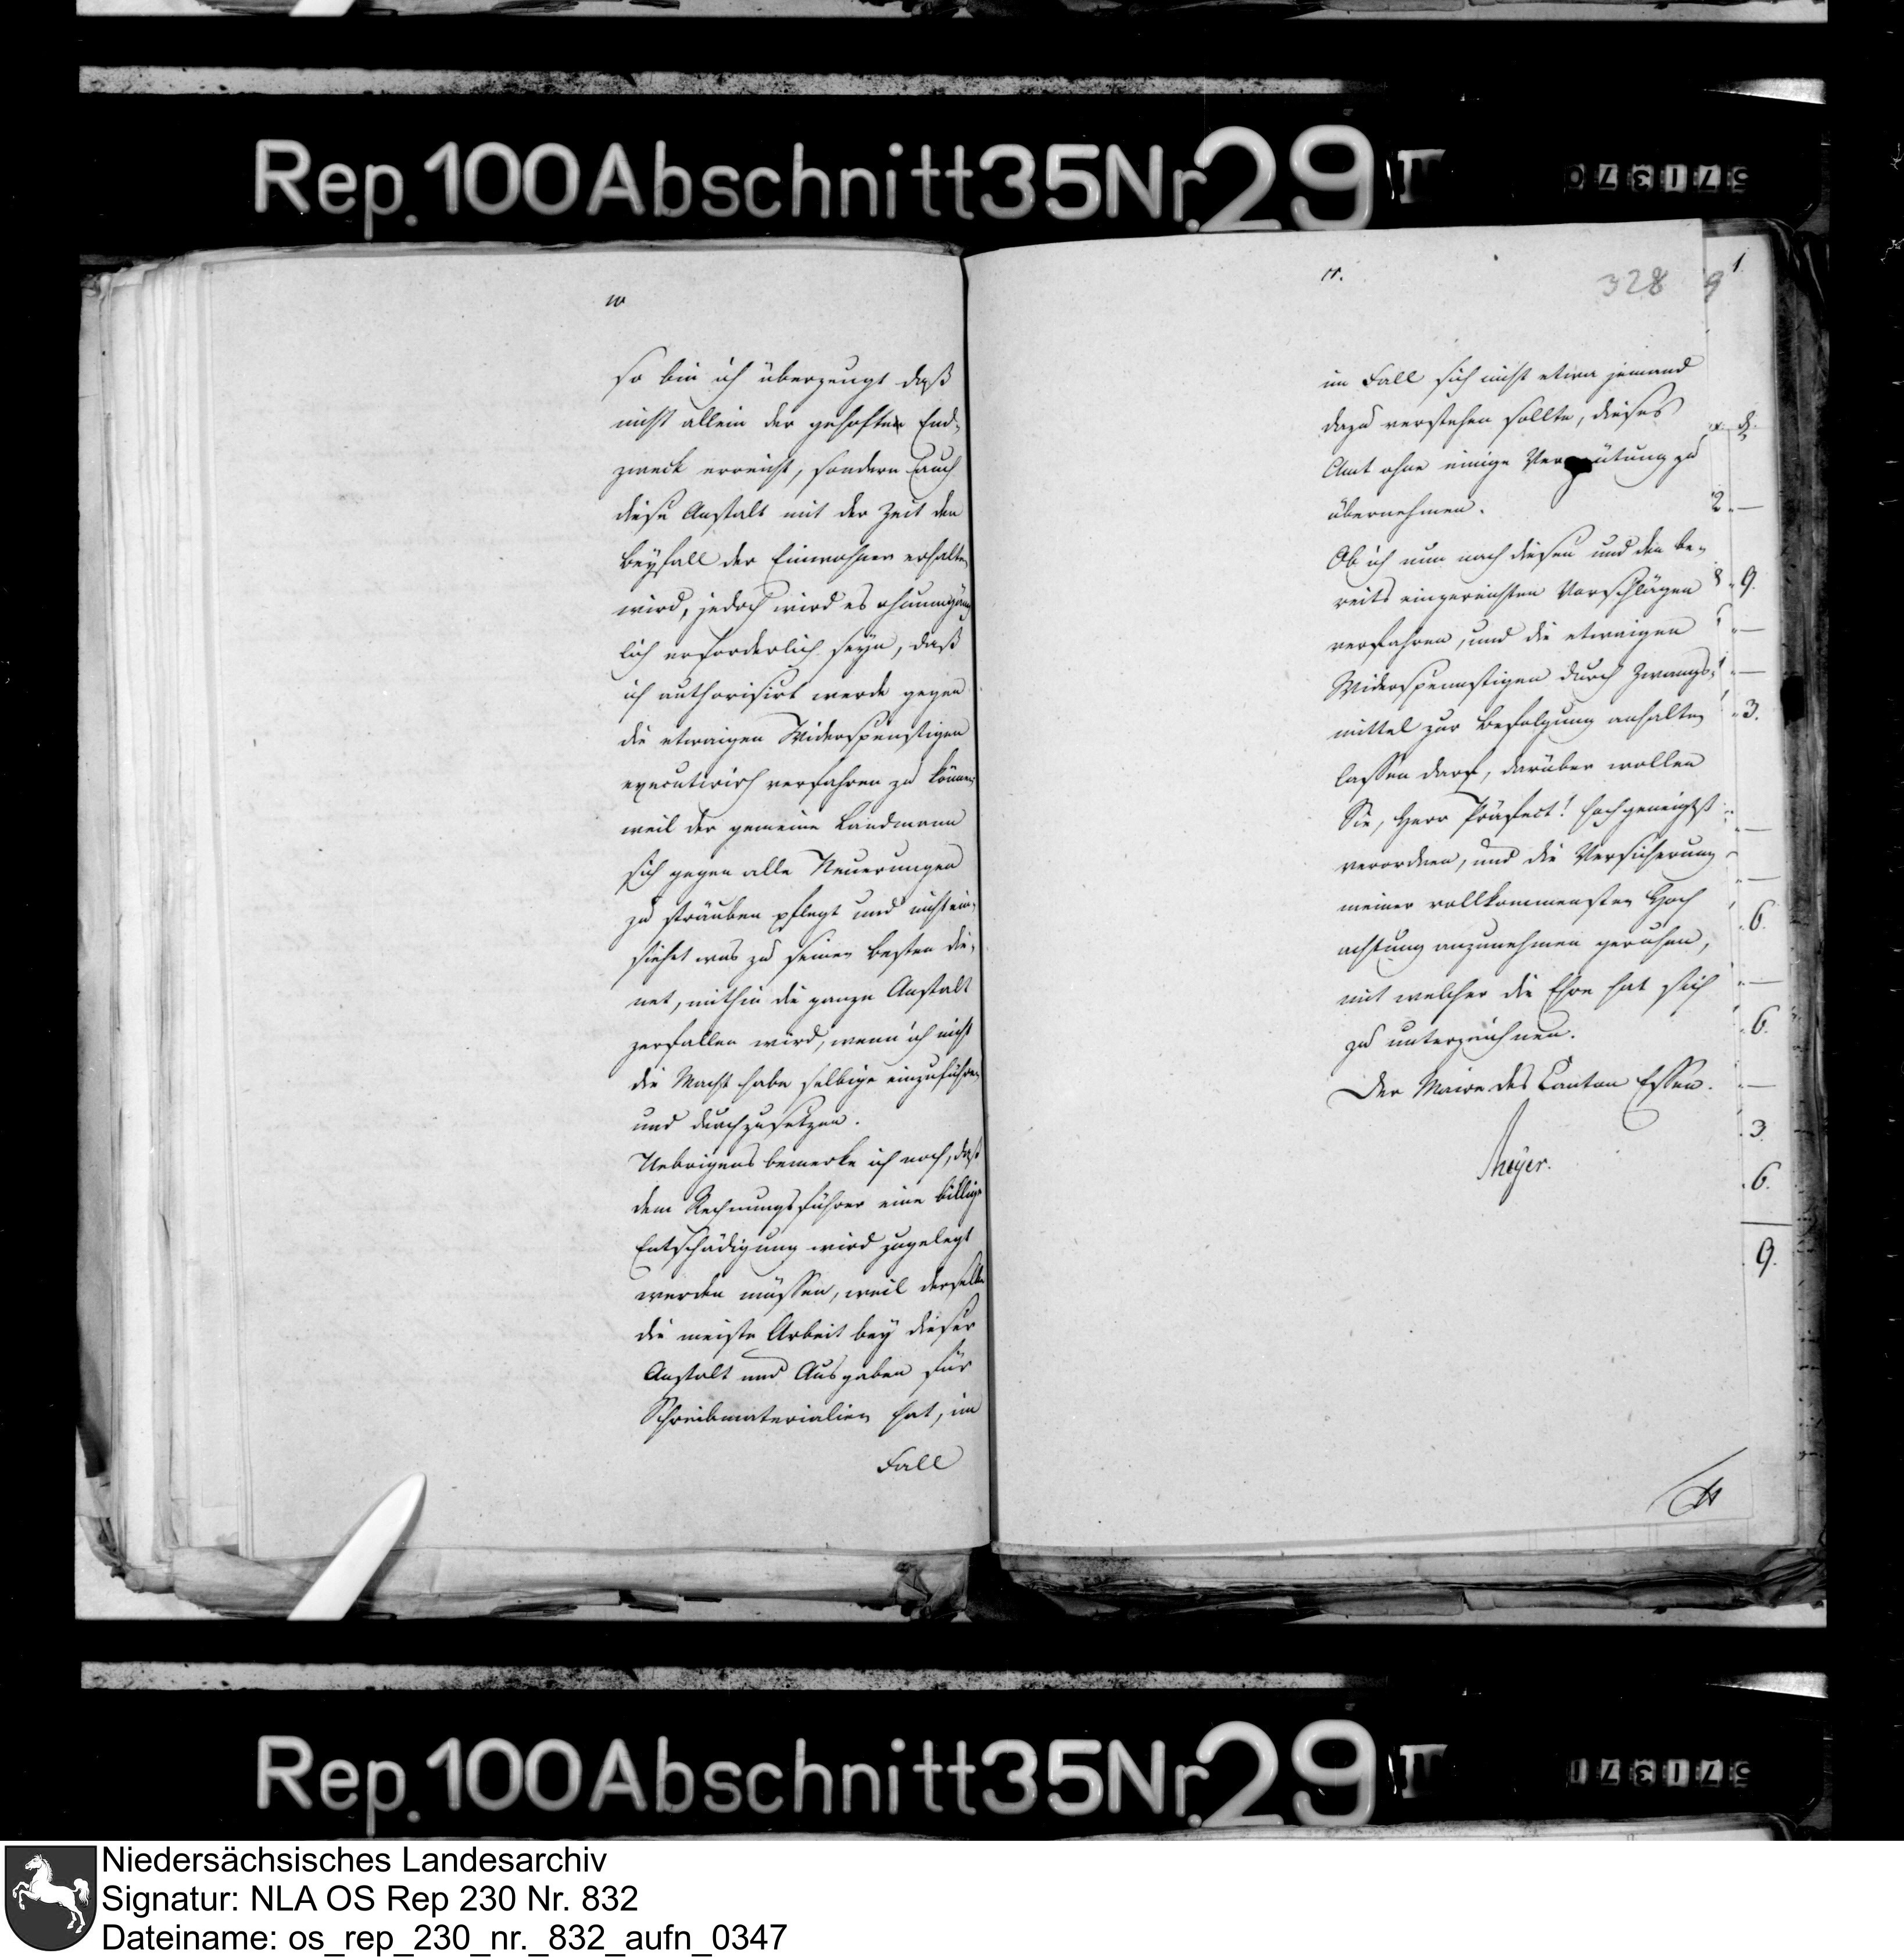 Rep. 100 Abschnitt 35 Nr. 29 II
10
so bin ich überzeugt daß
nicht allein der gehofte End-
zweck erreicht, sondern auch
diese Anstalt mit der Zeit den
Beyfall der Einwohner erhalten
wird, jedoch wird es ohnumgäng
lich erforderlich seyn, daß
ich authorisirt werde gegen
die etwaigen Widerspenstigen
executivisch verfahren zu können
weil der gemeine Landmann
sich gegen alle Neuerungen
zu sträuben pflegt und nicht ein-
siehet was zu seinen Besten die-
net, mithin die ganze Anstalt
zerfallen wird, wenn ich nicht
die Macht habe selbige einzuführen
und durchzusetzen.
Uebrigens bemerke ich noch, daß
dem Rechnungsführer eine billige
Entschädigung wird zugelegt
werden müssen, weil derselbe
die meiste Arbeit bey dieser
Anstalt und Ausgaben für
Schreibmaterialien hat, im
Fall
11.
328
im Fall sich nicht etwa jemand
dazu verstehen sollte, dieses
Amt ohne einige Vergütung zu
übernehmen.
Ob ich nun nach diesen und den be-
reits eingereichten Vorschlägen
verfahren, und die etwaigen
Widerspennstigen durch Zwangs-
mittel zur Befolgung anhalten
lassen darf, darüber wollen
Sie, Herr Präfect! hochgeneigtst
verordnen, und die Versicherung
meiner vollkommensten Hoch
achtung anzunehmen geruhen,
mit welcher die Ehre hat sich
zu unterzeichnen.
Der Maire des Canton Essen.
Meyer.
9.
3.
6.
6.
3.
6.
9.
Rep. 100 Abschnitt 35 Nr. 29 II
Niedersächsisches Landesarchiv
Signatur: NLA OS Rep 230 Nr. 832
Dateiname: os_rep_230_nr._832_aufn_0347